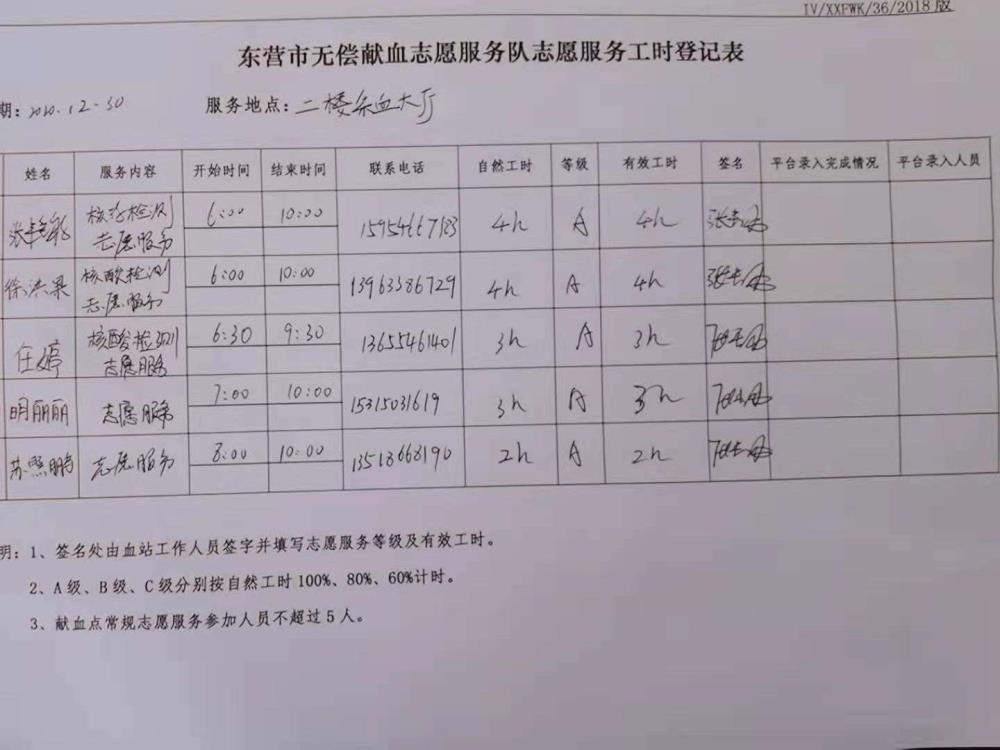 IV/XXFWK/36/2018版
东营市无偿献血志愿服务队志愿服务工时登记表
期: 2020.12-30 服务地点: 二楼采血大厅
姓名 服务内容 开始时间 结束时间 联系电话 自然工时 等级 有效工时 签名 平台录入完成情况 平台录入人员
核酸检测 6:00 10:00 4h A 4h
志愿服务
徐洪梁 核酸检测 6:00 10:00 13963386729 4h A 4h
志愿服务
任婷 核酸检测 6:30 9:30 13655461401 3h A 3h
志愿服务
明丽丽 志愿服务 7:00 10:00 15315031619 3h A 3h
苏熙鹏 志愿服务 8:00 10:00 13518668190 2h A 2h
明: 1、签名处由血站工作人员签字并填写志愿服务等级及有效工时。
2、A级、B级、C级分别按自然工时100%、80%、60%计时。
3、献血点常规志愿服务参加人员不超过5人。